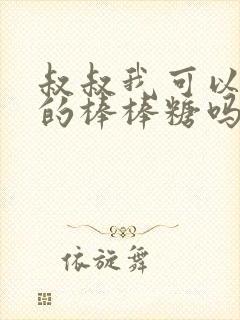 叔叔我可以
的棒棒糖吗
依旋舞